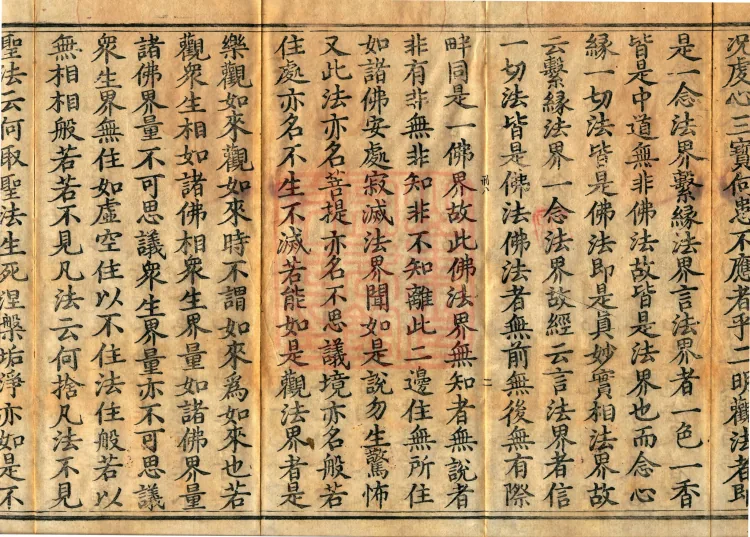 況處心三寳何患不應者乎二明觀法者即
是一念法界繫緣法界言法界者一色一香
皆是中道無非佛法故皆是法界也而念心
緣一切法皆是佛法即是真妙實相法界故
云繫緣法界一念法界故經云言法界者信
一切法皆是佛法佛法者無前無後無有際
畔同是一佛界故此佛法界無知者無說者
非有非無非知非不知離此二邊住無所住
如諸佛安處寂滅法界聞如是說勿生驚怖
又此法亦名菩提亦名不思議境亦名般若
住處亦名不生不滅若能如是觀法界者是
樂觀如來觀如來時不謂如來爲如來也若
觀衆生相如諸佛相衆生界量如諸佛界量
諸佛界量不可思議衆生界量亦不可思議
衆生界無住如虛空住以不住法住般若以
無相相般若若不見凡法云何捨凡法不見
聖法云何取聖法生死涅槃垢淨亦如是不